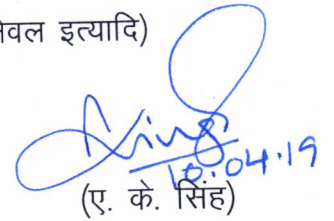 वल इत्यादि)
10.04.19
(ए. के. सिंह)